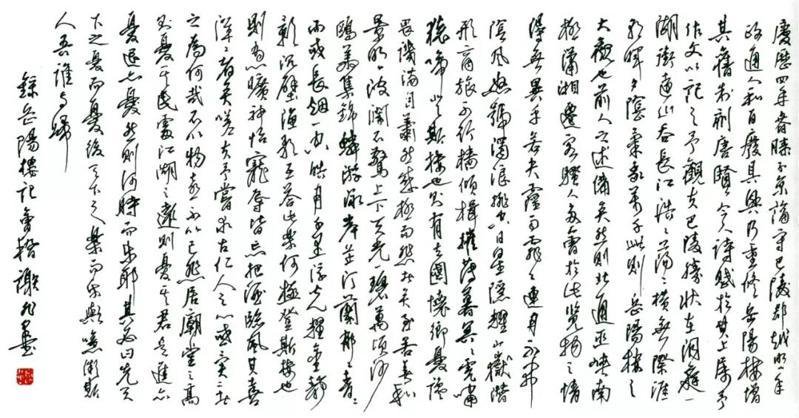 慶曆四年春滕子京謫守巴陵郡越明年
政通人和百廢具興乃重修岳陽樓增
其舊制刻唐賢今人詩賦於其上屬予
作文以記之予觀夫巴陵勝狀在洞庭一
湖銜遠山吞長江浩々湯々橫無際涯
朝暉夕陰氣象萬千此則岳陽樓之
大觀也前人之述備矣然則北通巫峽南
極瀟湘遷客騷人多會於此覽物之情
得無異乎若夫霪雨霏々連月不開
陰風怒號濁浪排空日星隱耀山嶽潛
形商旅不行檣傾楫摧薄暮冥々虎嘯
猿啼登斯樓也則有去國懷鄉憂讒
畏譏滿目蕭然感極而悲者矣至若春和
景明波瀾不驚上下天光一碧萬頃沙
鷗翔集錦鱗游泳岸芷汀蘭郁々青々
而或長煙一空皓月千里浮光耀金靜
影沉璧漁歌互答此樂何極登斯樓也
則有心曠神怡寵辱皆忘把酒臨風其喜
洋々者矣嗟夫予嘗求古仁人之心或異二者
之為何哉不以物喜不以己悲居廟堂之高
則憂其民處江湖之遠則憂其君是進亦
憂退亦憂然則何時而樂耶其必曰先天
下之憂而憂後天下之樂而樂歟噫微斯
人吾誰與歸
錄岳陽樓記會稽謝飛墨